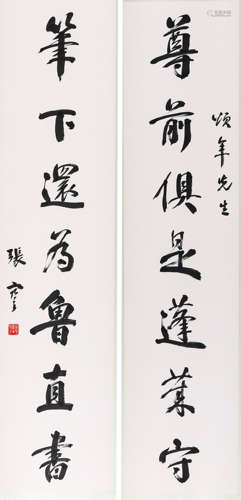 頌年先生
尊前俱是蓬萊守
筆下還為魯直書
張謇